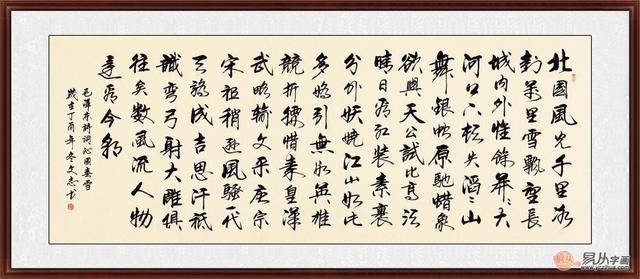 北國風光千里冰
封萬里雪飄望長
城内外惟餘莽々大
河上下頓失滔々山
舞銀蛇原馳蠟象
欲與天公試比高須
晴日看紅裝素裹
分外妖嬈江山如此
多嬌引無數英雄
競折腰惜秦皇漢
武略輸文采唐宗
宋祖稍遜風騷一代
天驕成吉思汗祇
識彎弓射大雕俱
往矣數風流人物
還看今朝
毛澤東詩詞沁園春雪
歲在丁酉年冬文志书
易从字画